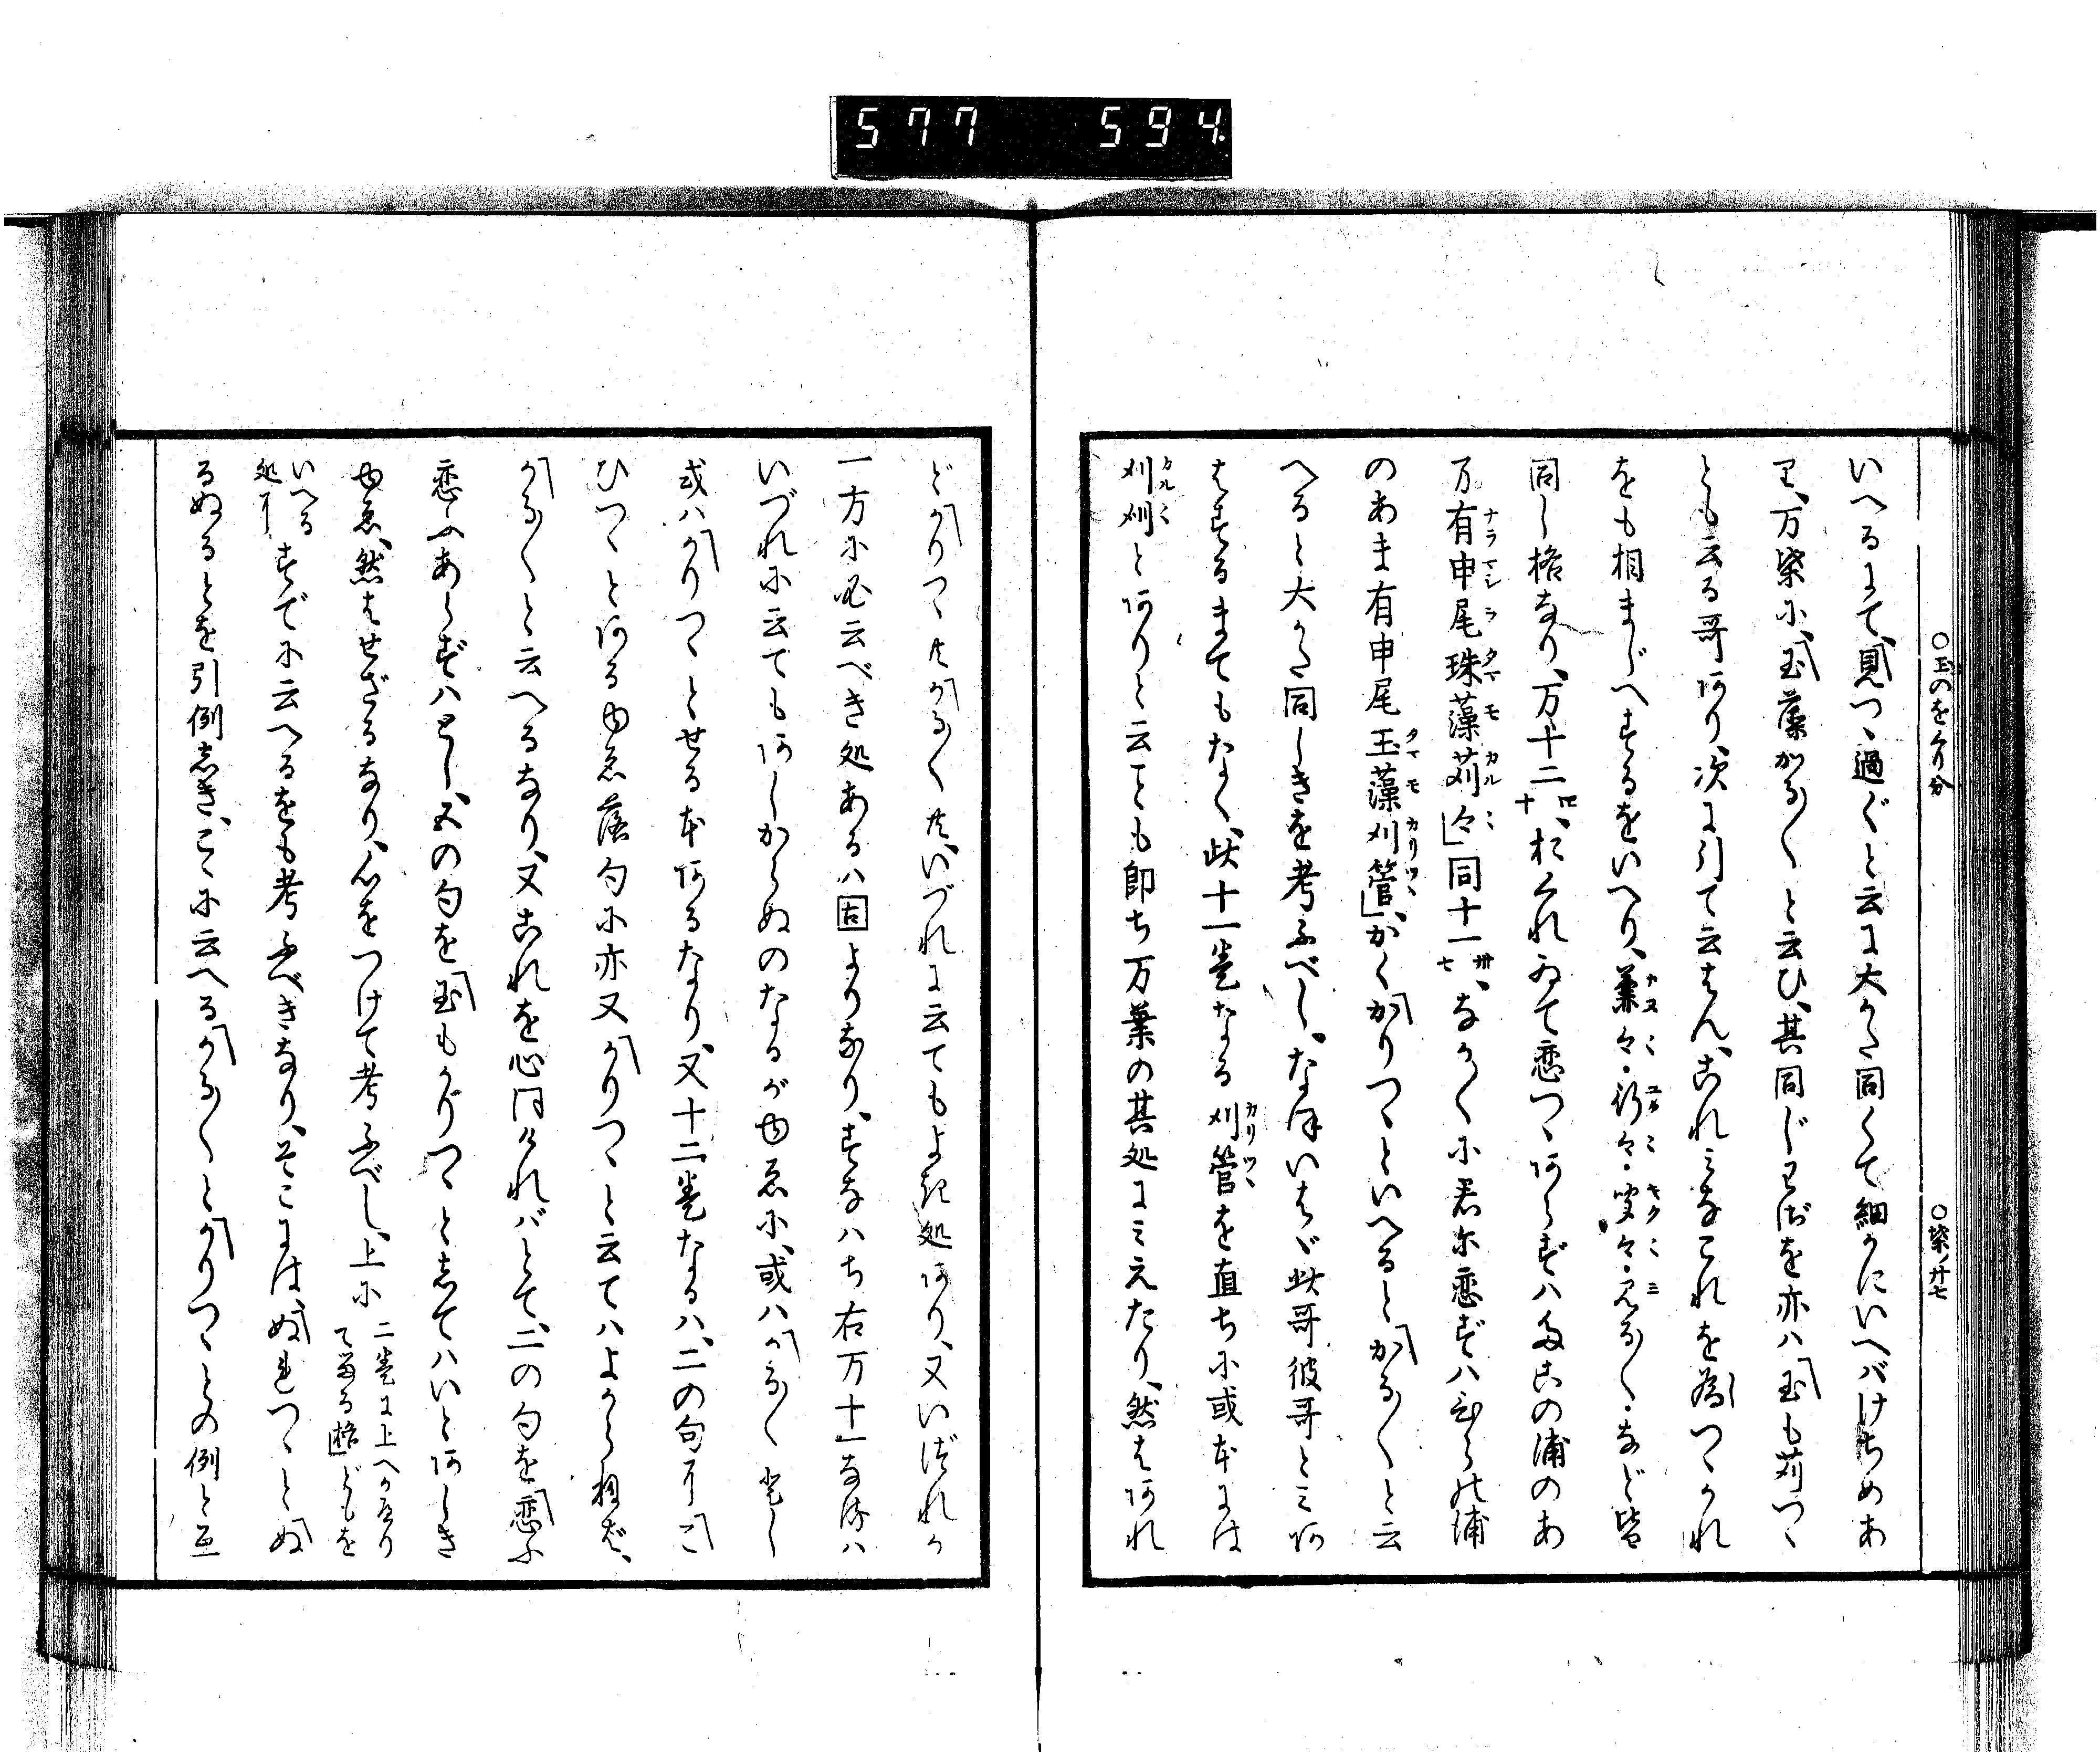 577 594
○玉のをくり分 ○柴ノ廿七
いへるにて、見つゝ過ぐと云に大かた同くて細かにいへバけちめあ
り、万葉に、玉藻かる〳〵と云ひ、其同じうたを亦ハ玉も苅つゝ
とも云る哥あり、次に引て云はん、これミなこれを為つゝかれ
をも相まじへするをいへり、兼々・行々・聞々・見る〳〵・など皆
同し格なり、万十二 四十、おくれゐて恋つゝあらずハたこの浦のあ
万有申尾珠藻苅々」同十一 卅七、なか〳〵に君に恋ずハひらの浦
のあま有申尾玉藻刈管」、かくかりつゝといへるとかる〳〵と云
へると大かた同しきを考ふべし、なほいはゞ此哥彼哥とミあ
はするまてもなく、此十一巻なる刈管を直ちに或本には
刈刈とありと云ことも即ち万葉の其処にミえたり、然はあれ
どかりつゝ共かる〳〵共、いづれに云てもよき処あり、又いづれか
一方に必云べき処あるハ固よりなり、すなハち右万十一なるハ
いづれに云てもあしからぬのなるがゆゑに、或ハかる〳〵とし
或ハかりつゝとせる本あるなり、又十二巻なるハ、二の句にこ
ひつゝとあるゆゑ落句に亦又かりつゝと云てハよからねば、
かる〳〵と云へるなり、又これを心得けれバとて、二の句を恋ふ
恋ふあらずハとし、又の句を玉もかりつゝとしてハいとあしき
ゆゑ、然はせざるなり、心をつけて考ふべし、上に 二巻に上へかへり て留る格どもを
いへる処に すでに云へるをも考ふべきなり、そこには、ぬれつゝとぬ
るぬるとを引例しき、こゝに云へるかる〳〵とかりつゝとの例と互